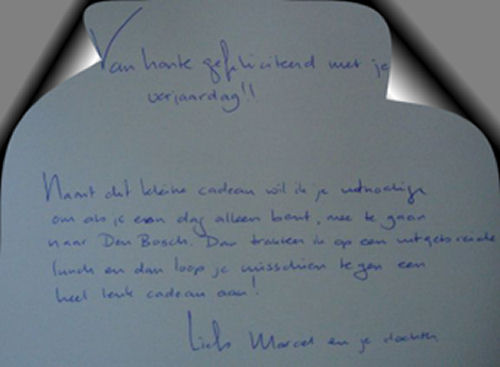 Van harte gefeliciteerd met je
verjaardag!!
Naast dit kleine cadeau wil ik je uitnodigen
om als je een dag alleen bent, mee te gaan
naar Den Bosch. Dan trakteer ik op een uitgebreide
lunch en dan loop je misschien tegen een
heel leuk cadeau aan!
Liefs Marcel en je dochter